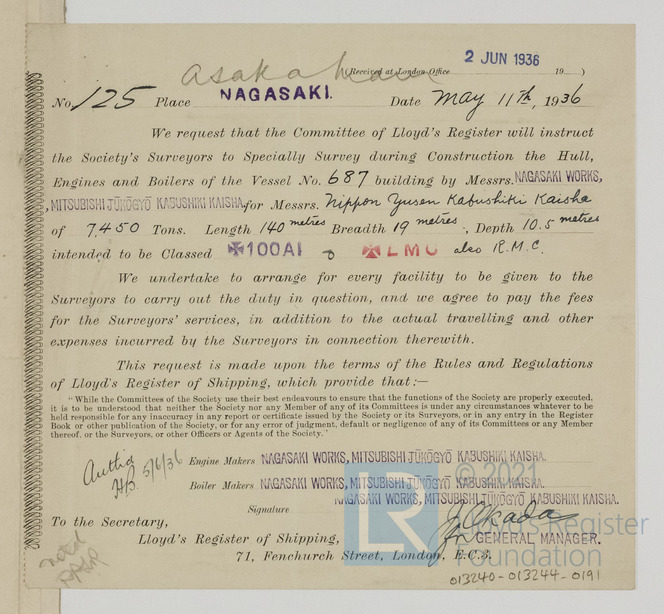 Received at London Office 2 JUN 1936 19 )
No. 125 Place NAGASAKI. Date May 11th, 1936
We request that the Committee of Lloyd's Register will instruct
the Society's Surveyors to Specially Survey during Construction the Hull,
Engines and Boilers of the Vessel No. 687 building by Messrs. NAGASAKI WORKS,
MITSUBISHI JŪKŌGYŌ KABUSHIKI KAISHA, for Messrs. Nippon Yusen Kabushiki Kaisha
of 7,450 Tons. Length 140 metres Breadth 19 metres, Depth 10.5 metres
intended to be Classed ✠100A1 & ✠LMC also R.M.C.
We undertake to arrange for every facility to be given to the
Surveyors to carry out the duty in question, and we agree to pay the fees
for the Surveyors' services, in addition to the actual travelling and other
expenses incurred by the Surveyors in connection therewith.
This request is made upon the terms of the Rules and Regulations
of Lloyd's Register of Shipping, which provide that:—
"While the Committees of the Society use their best endeavours to ensure that the functions of the Society are properly executed,
it is to be understood that neither the Society nor any Member of any of its Committees is under any circumstances whatever to be
held responsible for any inaccuracy in any report or certificate issued by the Society or its Surveyors, or in any entry in the Register
Book or other publication of the Society, or for any error of judgment, default or negligence of any of its Committees or any Member
thereof, or the Surveyors, or other Officers or Agents of the Society."
5/6/36
Engine Makers NAGASAKI WORKS, MITSUBISHI JŪKŌGYŌ KABUSHIKI KAISHA.
Boiler Makers NAGASAKI WORKS, MITSUBISHI JŪKŌGYŌ KABUSHIKI KAISHA.
NAGASAKI WORKS, MITSUBISHI JŪKŌGYŌ KABUSHIKI KAISHA.
Signature Okada
GENERAL MANAGER.
To the Secretary,
Lloyd's Register of Shipping,
71, Fenchurch Street, London, E.C.3.
noted
013240-013244-0191
© 2021
LR Lloyd's Register
Foundation